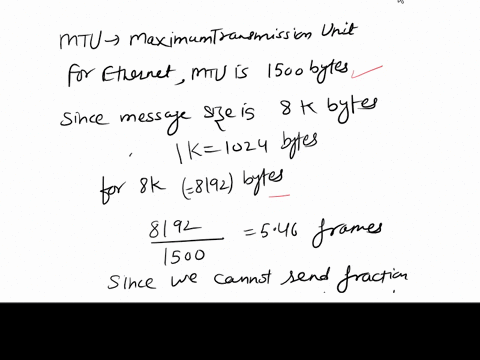 MTU → MaximumTransmission Unit
for Ethernet, MTU is 1500 bytes
Since message size is 8 K bytes
1K = 1024 bytes
for 8K (=8192) bytes
8192
1500
= 5.46 frames
Since we cannot send fraction